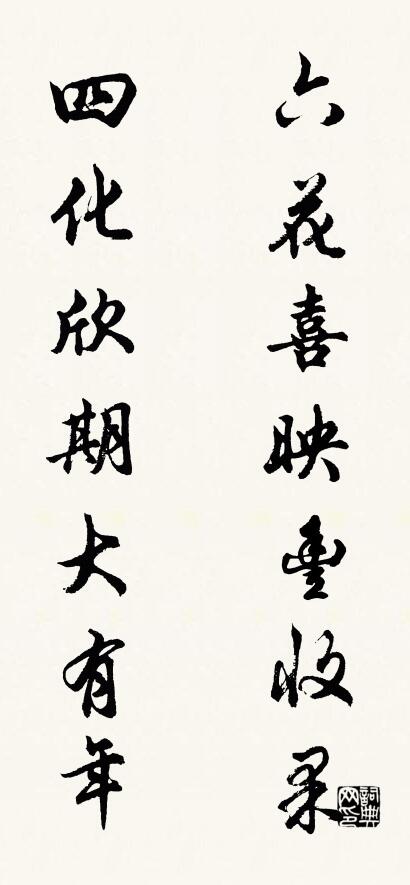 六花喜映豐收果
四化欣期大有年
詞典網印